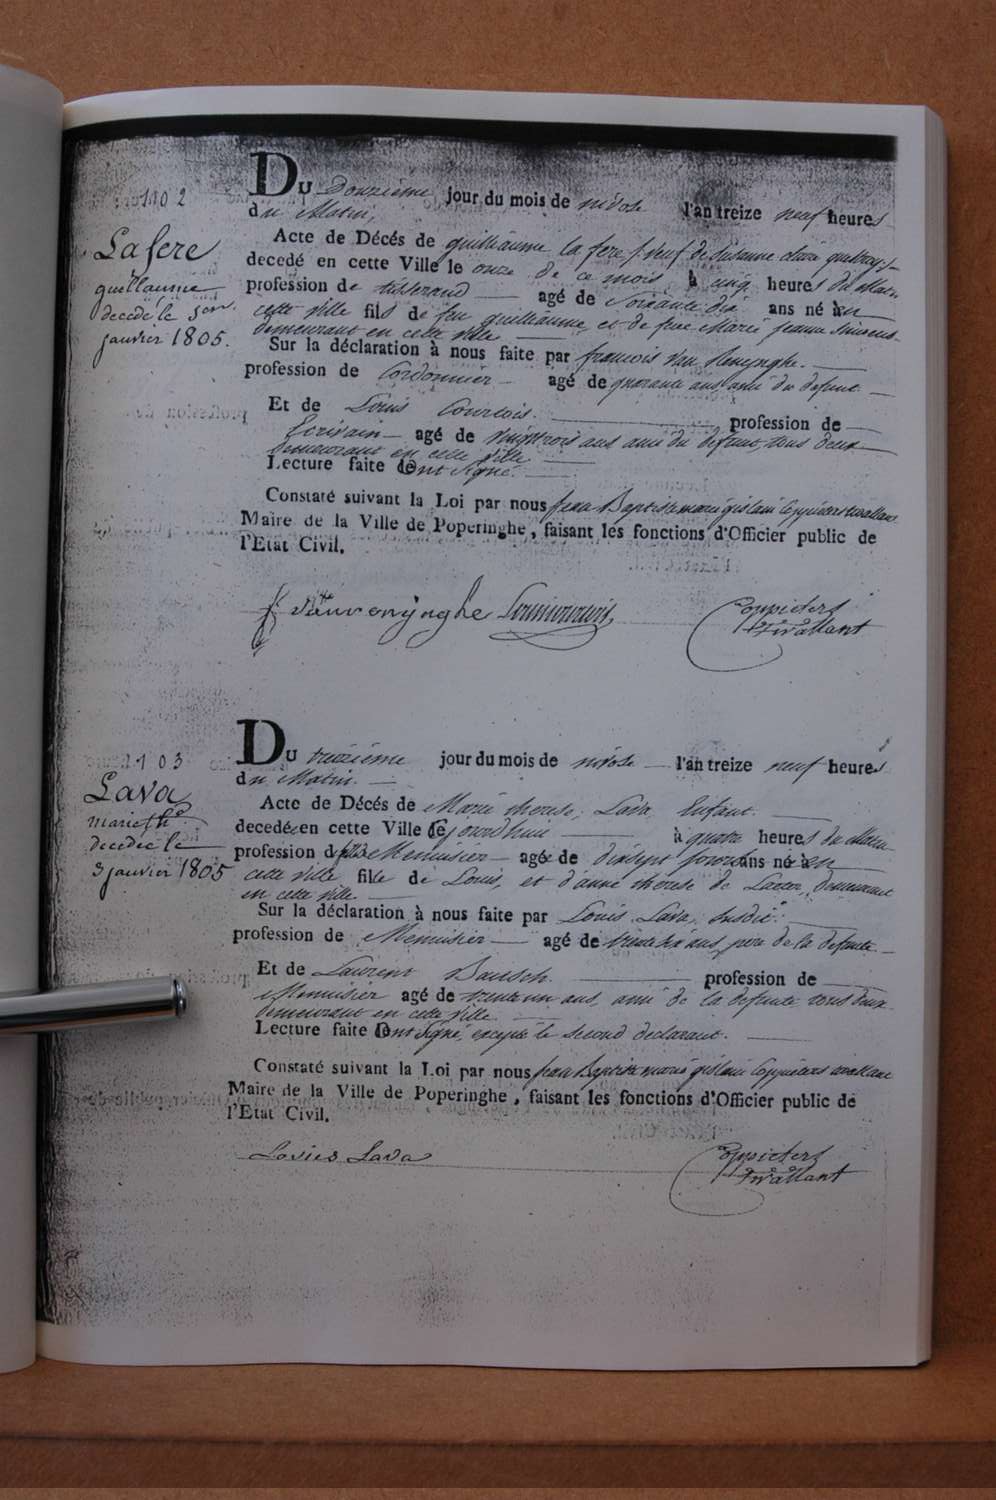 102
Lafere
guillaume
decedé le
janvier 1805.
Du Douzième jour du mois de nivose l'an treize neuf heures
du Matin,
Acte de Décés de guilliaume la fere veuf de Susanne claire
decedé en cette Ville le onze de ce mois à cinq heures du Matin
profession de tisserand agé de Soixante dix ans né à en
cette ville fils de feu guilliaume, et de feue Marie jeanne
demeurant en cette ville
Sur la déclaration à nous faite par francois
profession de Cordonnier agé de quarante ans ami du defunt
Et de Louis Courtois. profession de
Ecrivain agé de vingttrois ans ami du defunt, tous deux
demeurant en cette ville
Lecture faite ont Signé.
Constaté suivant la Loi par nous jean Baptiste marie gislain Coppieters twallant
Maire de la Ville de Poperinghe, faisant les fonctions d'Officier public de
l'Etat Civil.
Coppieters
twallant
103
Lava
marie th.
decedée le
3 janvier 1805
Du treizième jour du mois de nivose l'an treize neuf heures
du Matin
Acte de Décés de Marie therese, Lava, Enfant
decedée en cette Ville cejourdhuis à quatre heures du Matin
profession de Menuisier agée de dixsept jours ans né à en
cette ville fille de Louis, et d'anne therese de demeurant
en cette ville.
Sur la déclaration à nous faite par Louis Lava, Susdit
profession de Menuisier agé de ans, pere de la defunte
Et de Laurent profession de
Menuisier agé de trenteun ans, ami de la defunte tous deux
demeurant en cette ville.
Lecture faite ont Signé, excepté le Second declarant.
Constaté suivant la Loi par nous jean Baptiste marie gislain Coppieters twallant
Maire de la Ville de Poperinghe, faisant les fonctions d'Officier public de
l'Etat Civil.
Lovies Lava
Coppieters
twallant